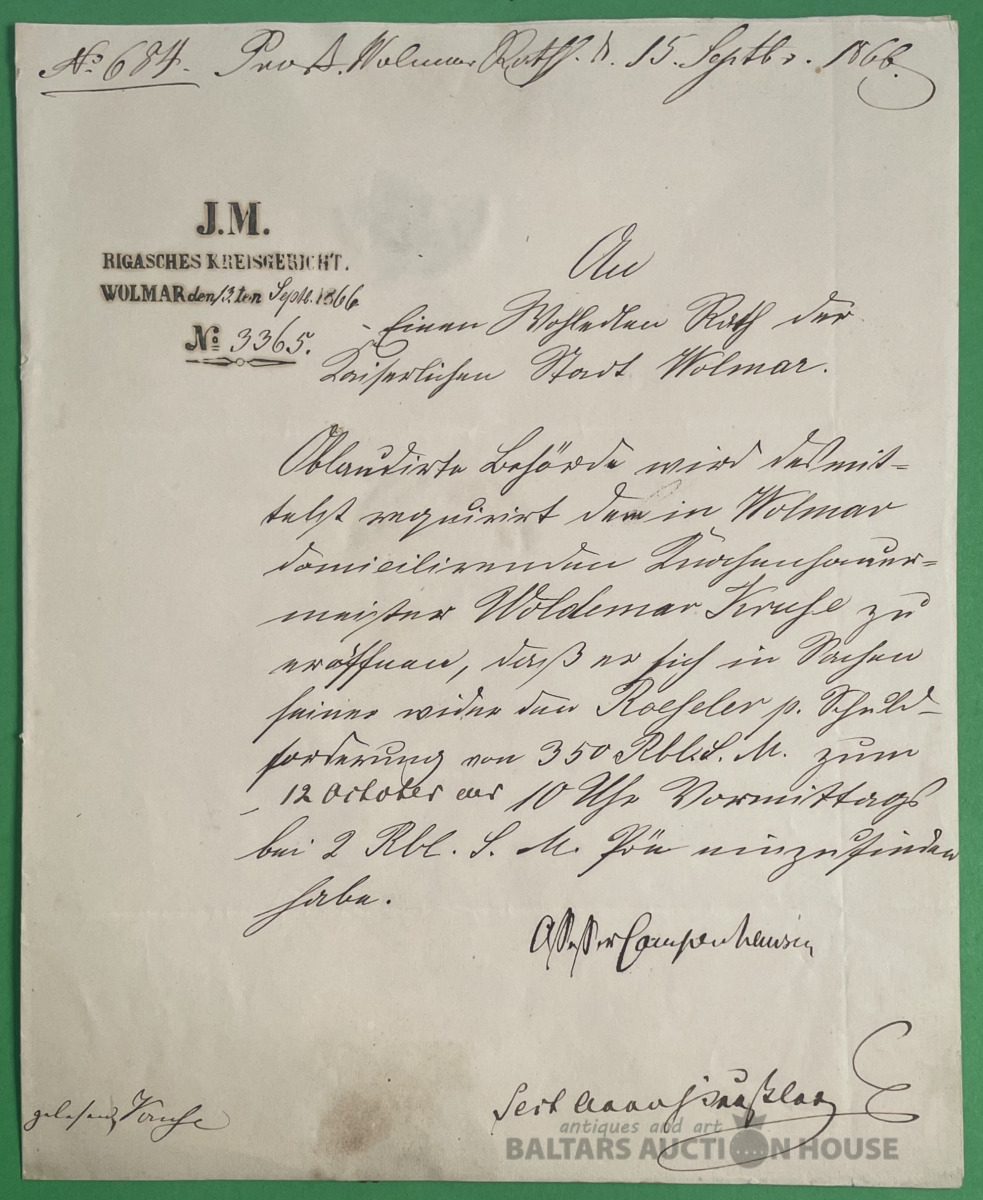 No 684. Prod. Wolmar Rath. d. 15. Septbr. 1866.
J. M.
RIGASCHES KREISGERICHT.
WOLMAR den 13ten Septb. 1866
No 3365.
An
Einen Wohledlen Rath der
Kaiserlichen Stadt Wolmar.
Oblaudirte Behörde wird desmit-
telst requirirt dem in Wolmar
domicilirenden Knochenhauer-
meister Woldemar Kruse zu
eröffnen, daß er sich in Sachen
seiner wider den Roeseler p. Schuld-
forderung von 350 Rbl. S. M. zum
12 October cur 10 Uhr Vormittags
bei 2 Rbl. S. M. Pön einzufinden
habe.
Assessor Campenhausen
gelesen Kruse
antiques and art
BALTARS AUCTION HOUSE